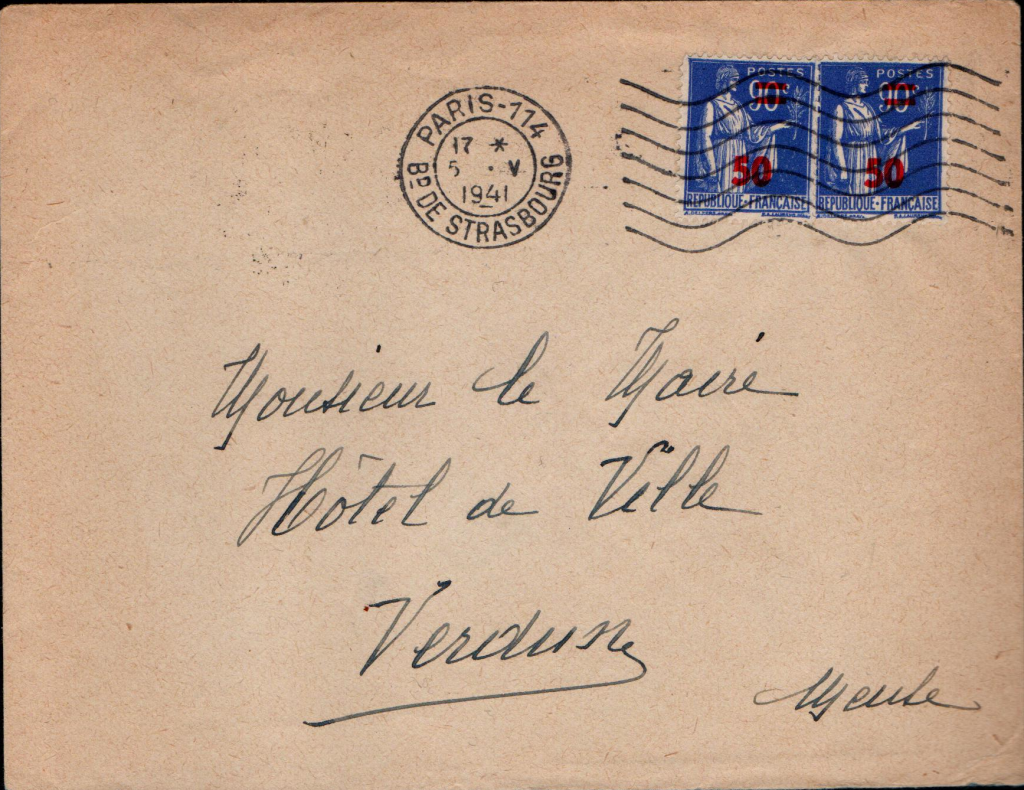 PARIS-114
17 *
5 · V
1941
BD DE STRASBOURG
POSTES
90c
50
REPUBLIQUE·FRANÇAISE
POSTES
90c
50
REPUBLIQUE·FRANÇAISE
Monsieur le Maire
Hôtel de Ville
Verdun
Meuse